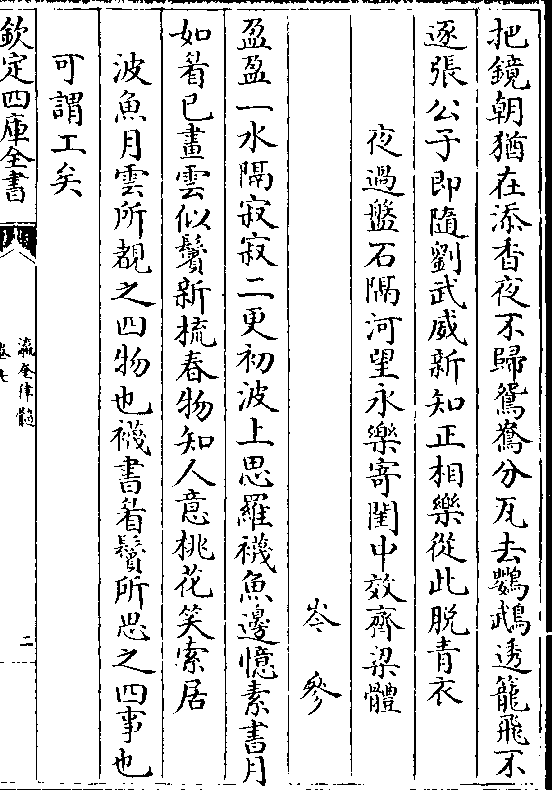 把鏡朝猶在添香夜不歸鴛鴦分瓦去鸚鵡透籠飛不
逐張公子即隨劉武威新知正相樂從此脫青衣
夜過盤石隔河望永樂寄閨中效齊梁體
岑參
盈盈一水隔寂寂二更初波上思羅襪魚邊憶素書月
如眉已畫雲似鬢新梳春物知人意桃花笑索居
波魚月雲所覩之四物也襪書眉鬢所思之四事也
可謂工矣
欽定四庫全書
瀛奎律髓
卷七
二